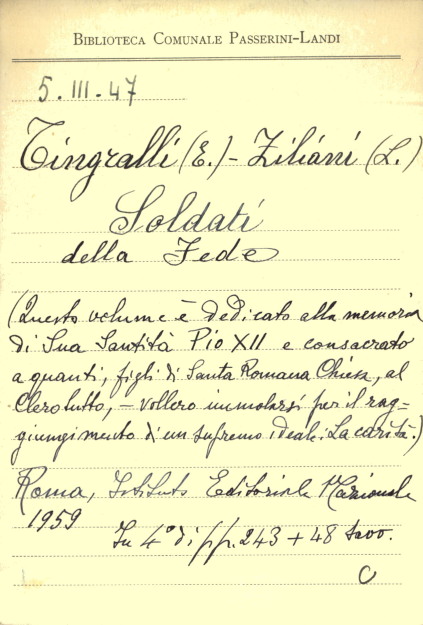 BIBLIOTECA COMUNALE PASSERINI-LANDI
5.III.47
Tingralli (E.) - Ziliani (L.)
Soldati
della Fede
(Questo volume è dedicato alla memoria
di Sua Santità Pio XII e consacrato
a quanti, figli di Santa Romana Chiesa, al
Clero tutto, - vollero immolarsi per il rag-
giungimento di un supremo ideale: La carità.)
Roma, Istituto Editoriale Nazionale
1959
In 4° di pp. 243 + 48 tavv.
C